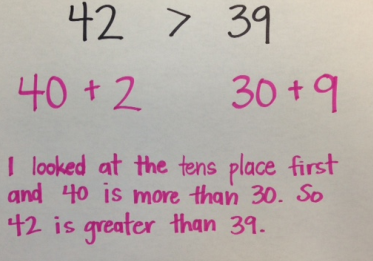 42 > 39
40 + 2 30 + 9
I looked at the tens place first
and 40 is more than 30. So
42 is greater than 39.